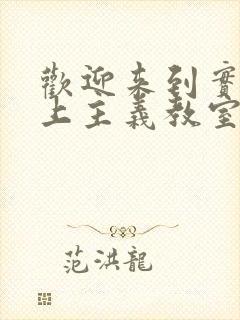 歡迎来到實
上主義教室
范洪龍